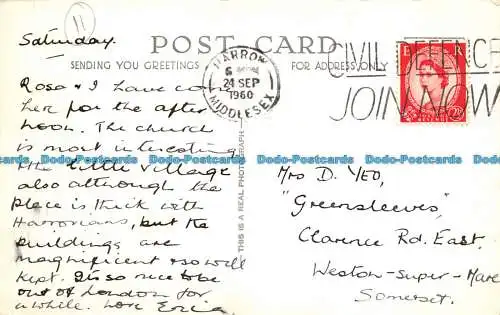 11
Saturday.
POST CARD
SENDING YOU GREETINGS
FOR ADDRESS ONLY
HARROW
24 SEP
1960
MIDDLESEX
CIVIL DEFENCE
JOIN NOW
E R
Rosa & I have come
her for the after
noon. The church
is most interesting
the little village
also although the
place is thick with
Harrovians, but the
buildings are
magnificent & so well
kept. Its so nice to be
out of London for
a while. Love Erica
THIS IS A REAL PHOTOGRAPH
Mrs D. YEO,
"Greensleeves",
Clarence Rd. East,
Weston-Super-Mare
Somerset.
bdc-Postcards bdc-Postcards bdc-Postcards